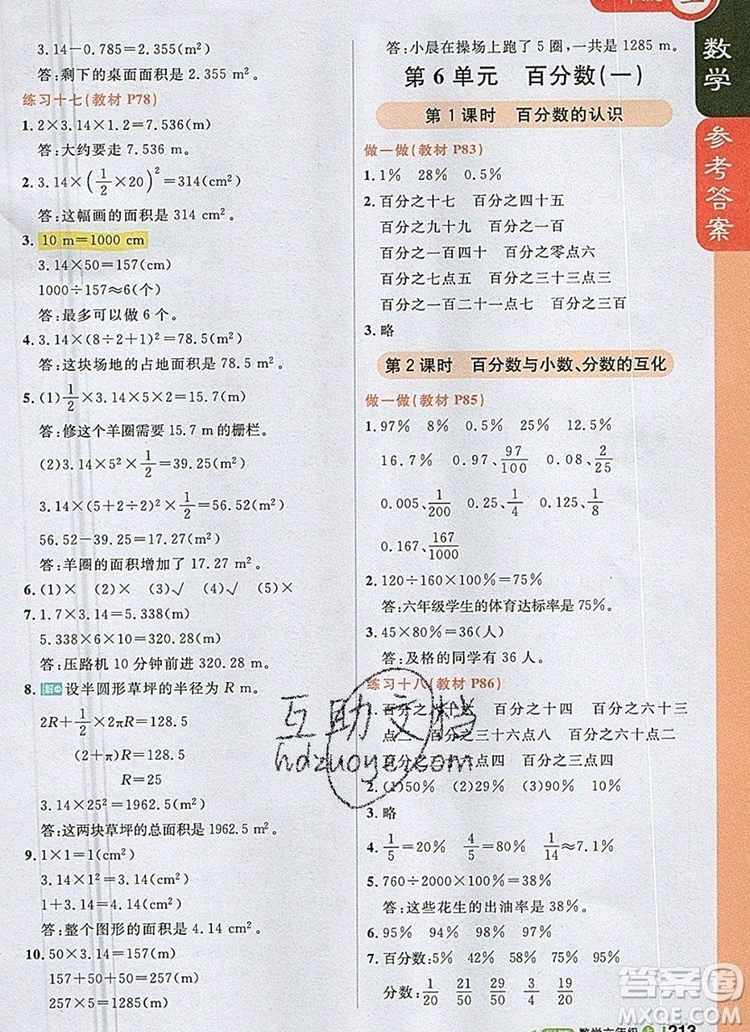 3.14-0.785=2.355(m²)
答:剩下的桌面面积是 2.355 m²。
练习十七(教材 P78)
1. 2×3.14×1.2=7.536(m)
答:大约要走 7.536 m。
2. 3.14×(1/2×20)²=314(cm²)
答:这幅画的面积是 314 cm²。
3. 10 m=1000 cm
3.14×50=157(cm)
1000÷157≈6(个)
答:最多可以做 6 个。
4. 3.14×(8÷2+1)²=78.5(m²)
答:这块场地的占地面积是 78.5 m²。
5. (1)1/2×3.14×5×2=15.7(m)
答:修这个羊圈需要 15.7 m 的栅栏。
(2)3.14×5²×1/2=39.25(m²)
3.14×(5+2÷2)²×1/2=56.52(m²)
56.52-39.25=17.27(m²)
答:羊圈的面积增加了 17.27 m²。
6. (1)× (2)× (3)√ (4)√ (5)×
7. 1.7×3.14=5.338(m)
5.338×6×10=320.28(m)
答:压路机 10 分钟前进 320.28 m。
8. 设半圆形草坪的半径为 R m。
2R+1/2×2πR=128.5
(2+π)R=128.5
R=25
3.14×25²=1962.5(m²)
答:这两块草坪的总面积是 1962.5 m²。
9. 1×1=1(cm²)
3.14×1²=3.14(cm²)
1+3.14=4.14(cm²)
答:整个图形的面积是 4.14 cm²。
10. 50×3.14=157(m)
157+50+50=257(m)
257×5=1285(m)
答:小晨在操场上跑了 5 圈,一共是 1285 m。
第 6 单元 百分数(一)
第 1 课时 百分数的认识
做一做(教材 P83)
1. 1% 28% 0.5%
2. 百分之十七 百分之四十五
百分之九十九 百分之一百
百分之一百四十 百分之零点六
百分之七点五 百分之三十三点三
百分之一百二十一点七 百分之三百
3. 略
第 2 课时 百分数与小数、分数的互化
做一做(教材 P85)
1. 97% 8% 0.5% 25% 12.5%
16.7% 0.97、97/100 0.08、2/25
0.005、1/200 0.25、1/4 0.125、1/8
0.167、167/1000
2. 120÷160×100%=75%
答:六年级学生的体育达标率是 75%。
3. 45×80%=36(人)
答:及格的同学有 36 人。
练习十八(教材 P86)
1. 百分之三 百分之十四 百分之六十三
点三 百分之二十三点六 百分之六十点六
2. (1)50% (2)29% (3)90%
3. 略
4. 1/5=20% 4/5=80% 2/5=40%
5. 760÷2000×100%=38%
答:这些花生的出油率是 38%。
6. 95% 94% 92% 94%
数学
参考答案
互助文档
hdzuoye.com
答案圈
213